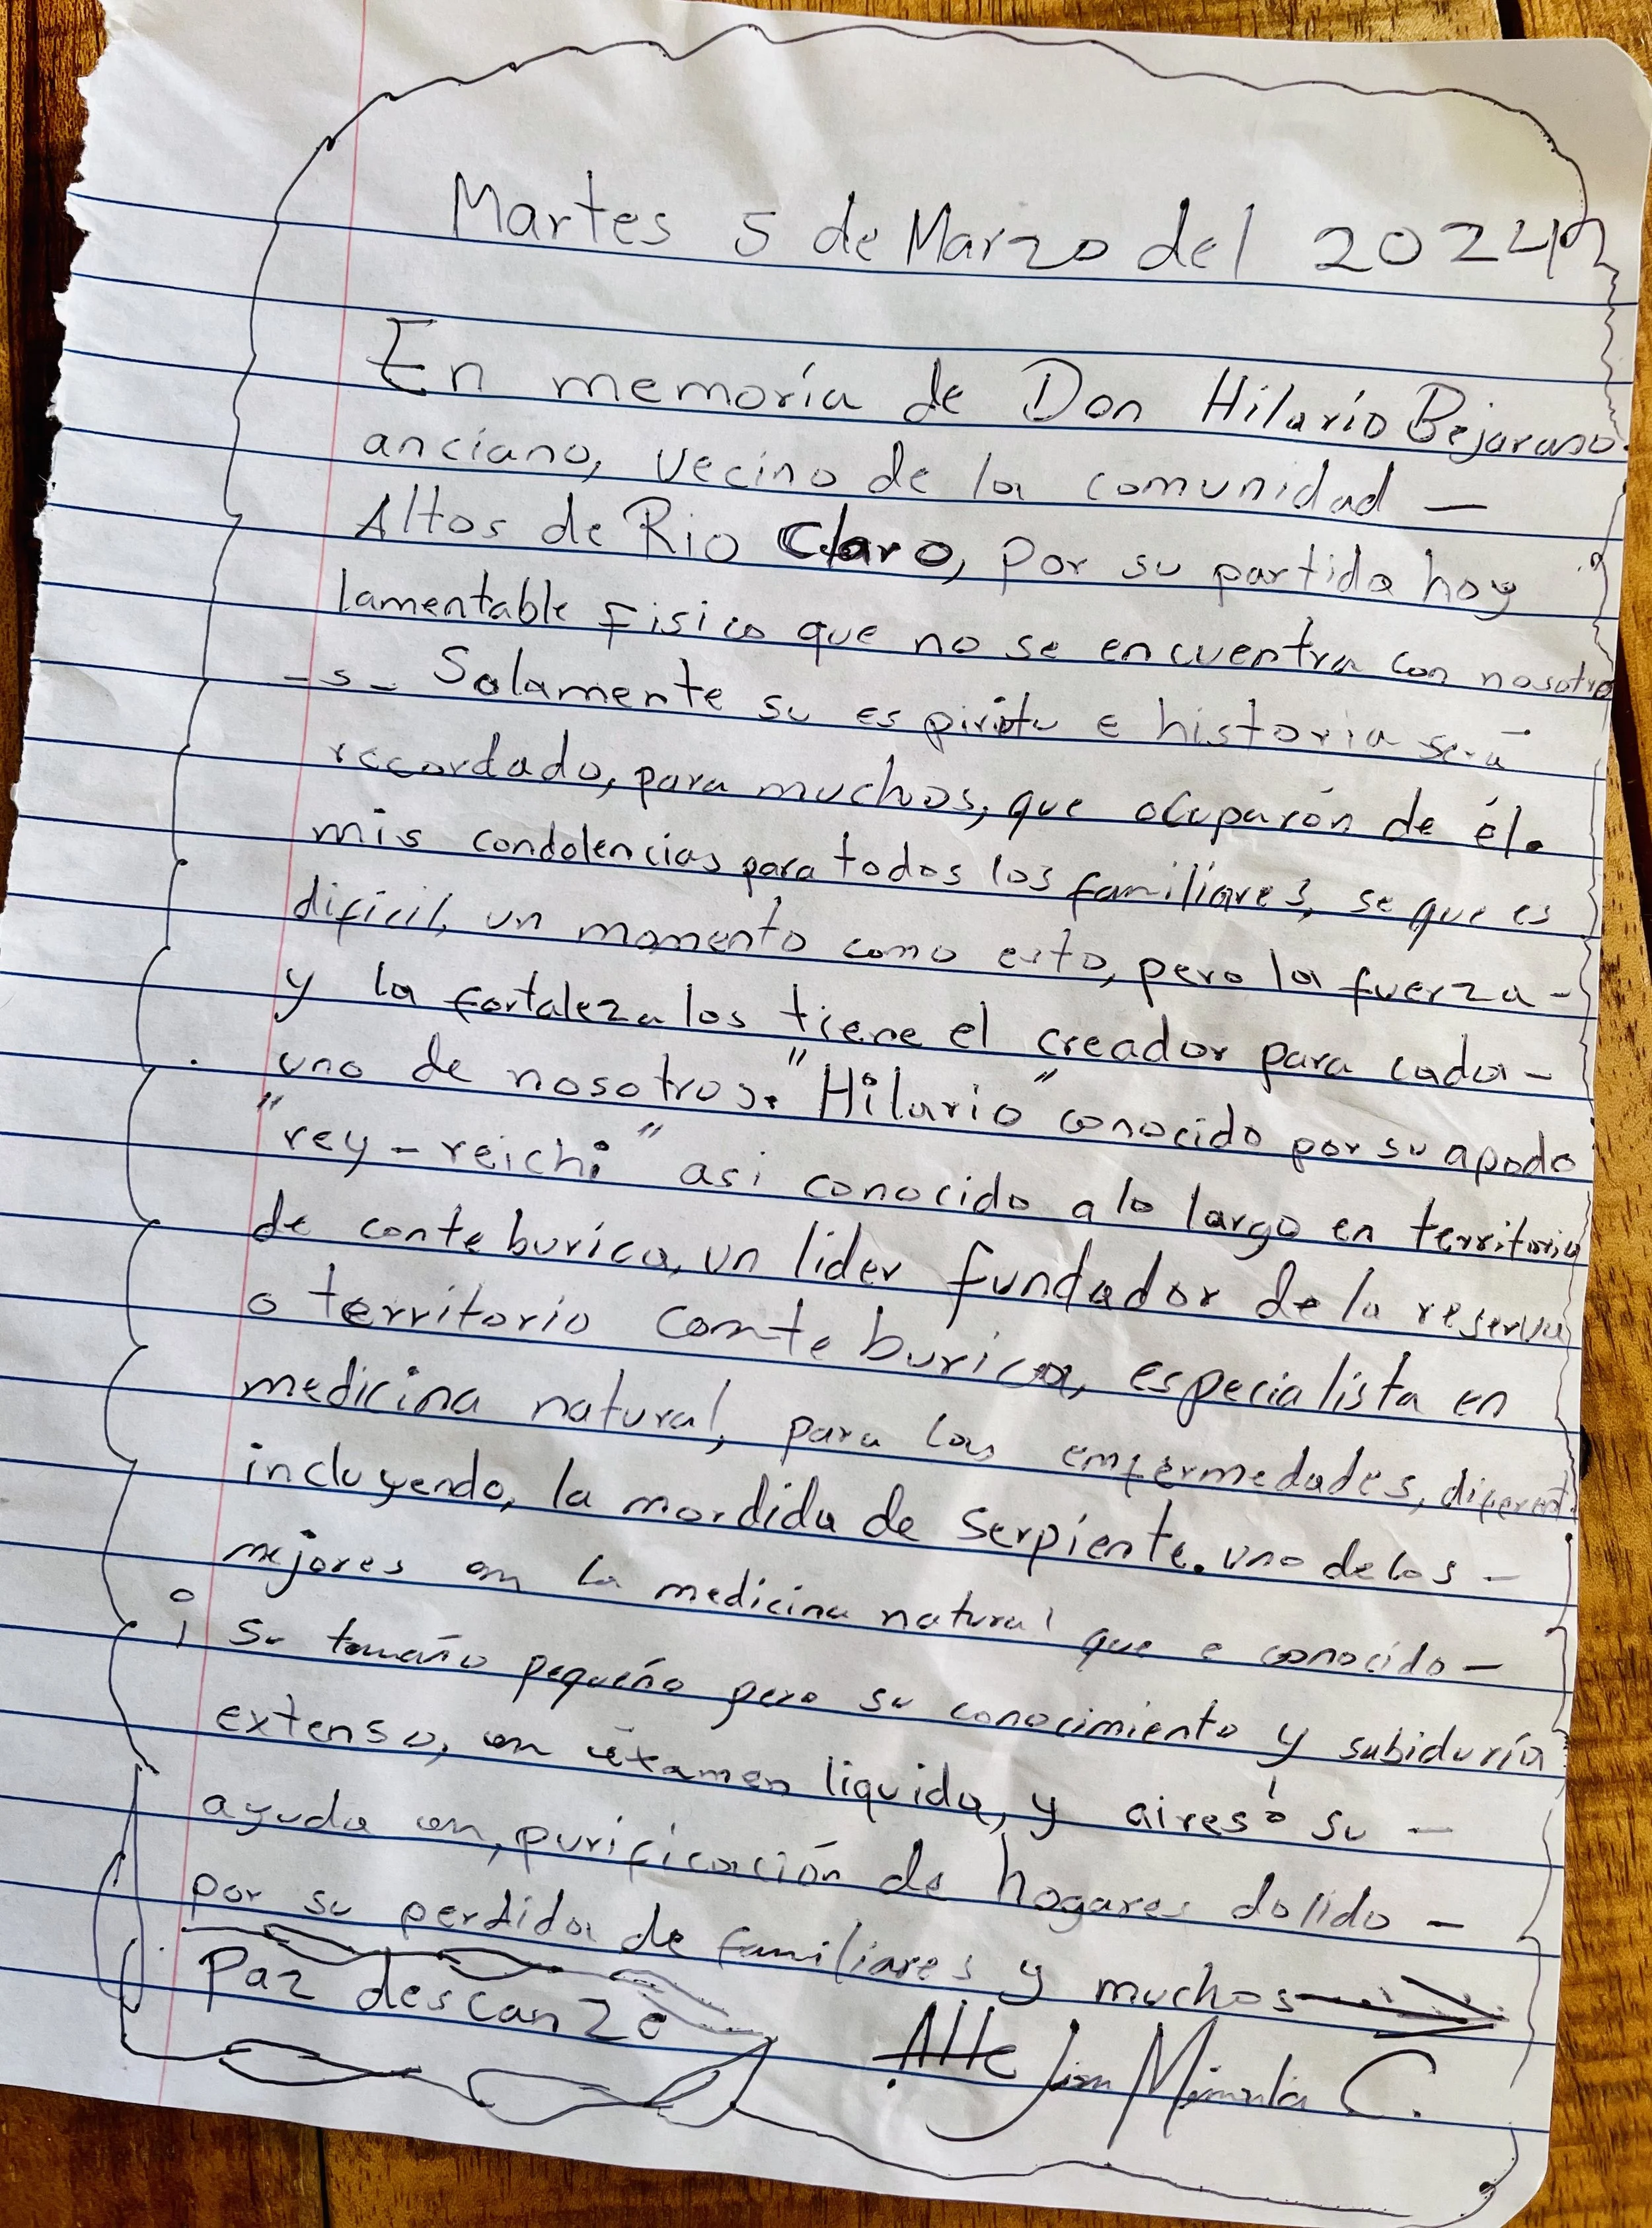 Martes 5 de Marzo del 2024
En memoría de Don Hilarío Bejarano
anciano, vecino de la comunidad —
Altos de Rio Claro, por su partida hoy
lamentable Fisico que no se encuentra con nosotro
-s- Solamente su espiritu e historia será
recordado, para muchos, que ocuparón de él.
mis condolencias para todos los familiares, se que es
dificil, un momento como esto, pero la fuerza -
y la fortaleza los tiene el creador para cada -
uno de nosotros. "Hilario" conocido por su apodo
"rey-reichi" asi conocido a lo largo en territorio
de conte burica, un lider fundador de la reserva
o territorio conte burica, especialista en
medicina natural, para las emfermedades, diferent.
incluyendo, la mordida de serpiente. uno de los -
mejores en la medicina natural que e conocido -
¡ Su tamaño pequeño pero su conocimiento y sabiduría
extenso, en éxamen liquida, y aires ó su -
ayuda en, purificación de hogares dolido -
por su perdida de familiares y muchos
Paz descanze
Atte C.